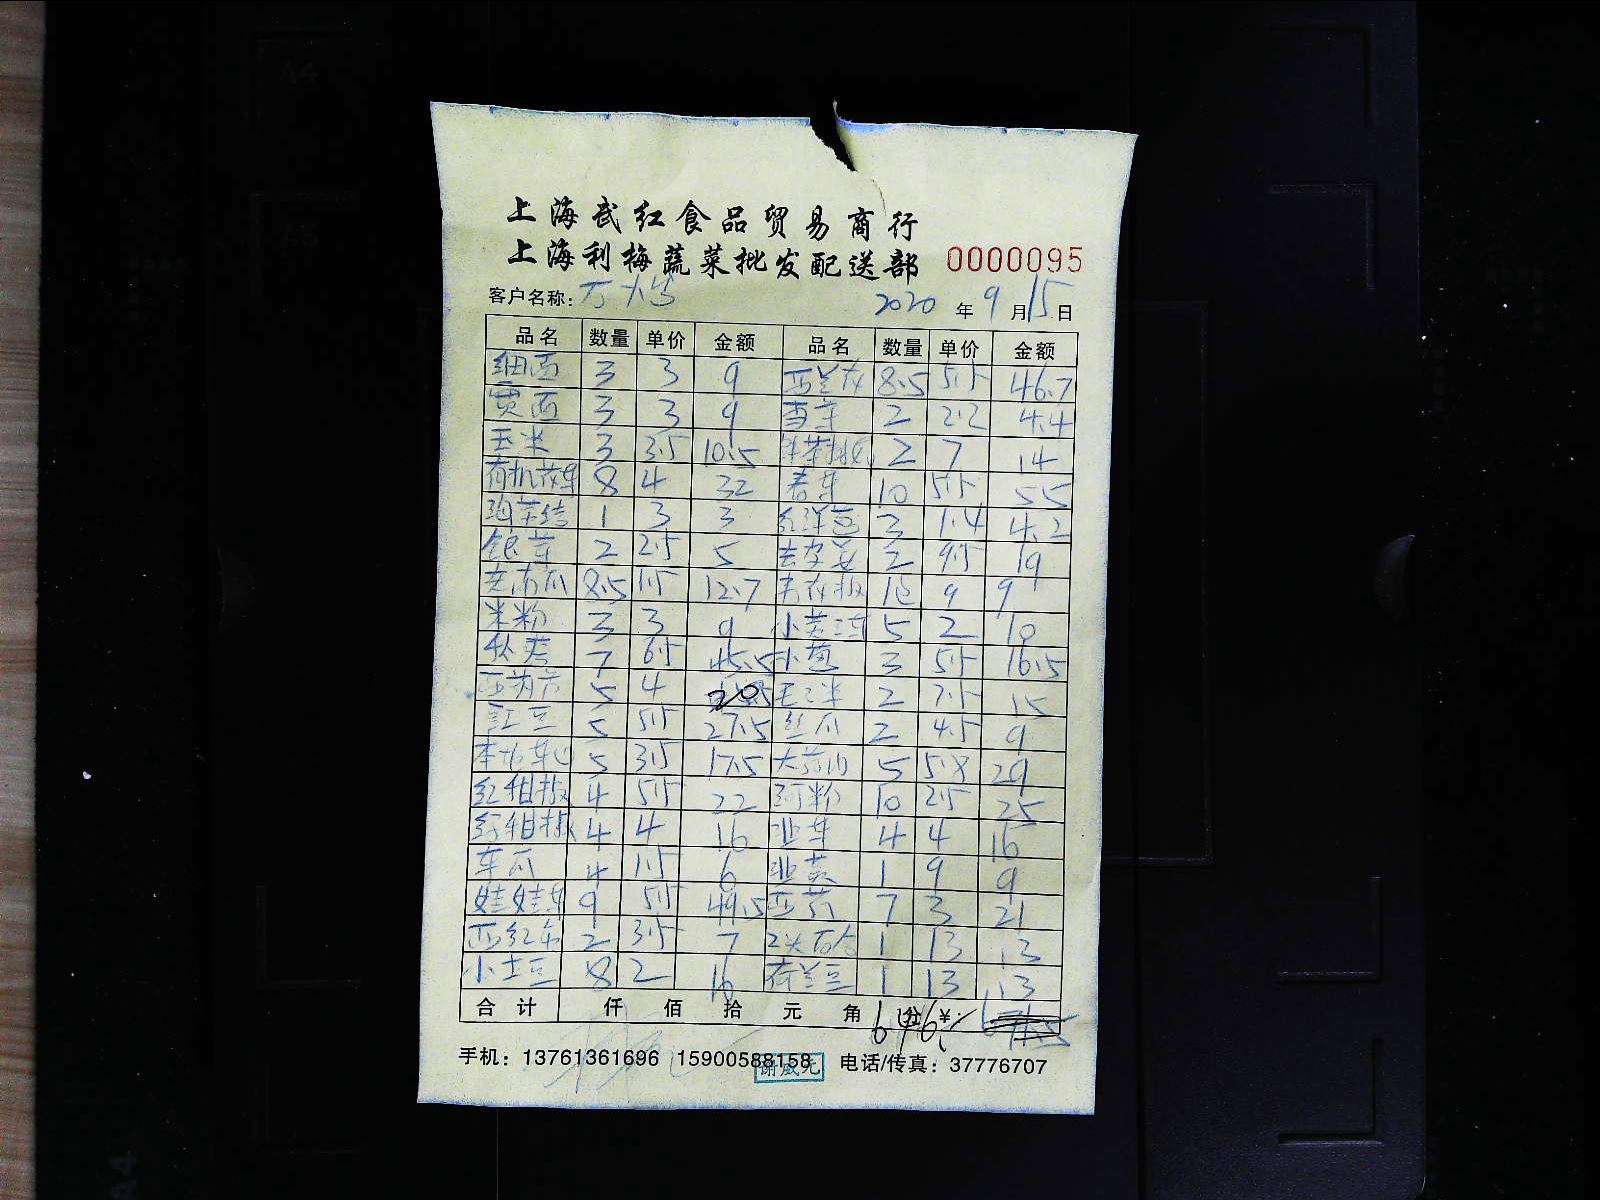 上海武红食品贸易商行
上海利梅蔬菜批发配送部 0000095
客户名称: 2020 年 9 月 15 日
品名 数量 单价 金额 品名 数量 单价 金额
细面 3 3 9 西兰花 8.5 5.5 46.7
贡面 3 3 9 香芹 2 2.2 4.4
玉米 3 3.5 10.5 2 7 14
有机花菜 8 4 32 春笋 10 5.5 55
海带结 1 3 3 红洋葱 3 1.4 4.2
银芽 2 2.5 5 去皮姜 2 9.5 19
老南瓜 8.5 1.5 12.7 1包 9 9
米粉 3 3 9 5 2 10
7 6.5 45.5 小葱 3 5.5 16.5
西葫芦 5 4 20 毛毛菜 2 7.5 15
豇豆 5 5.5 27.5 丝瓜 2 4.5 9
5 3.5 17.5 5 5.8 29
红甜椒 4 5.5 22 河粉 10 2.5 25
4 4 16 4 4 16
冬瓜 4 1.5 6 韭黄 1 9 9
娃娃菜 9 5.5 49.5 西芹 7 3 21
西红柿 2 3.5 7 1 13 13
小土豆 8 2 16 荷兰豆 1 13 13
合计 仟 佰 拾 元 角 分 ¥:
手机: 13761361696 15900588158 电话/传真: 37776707
谢威元